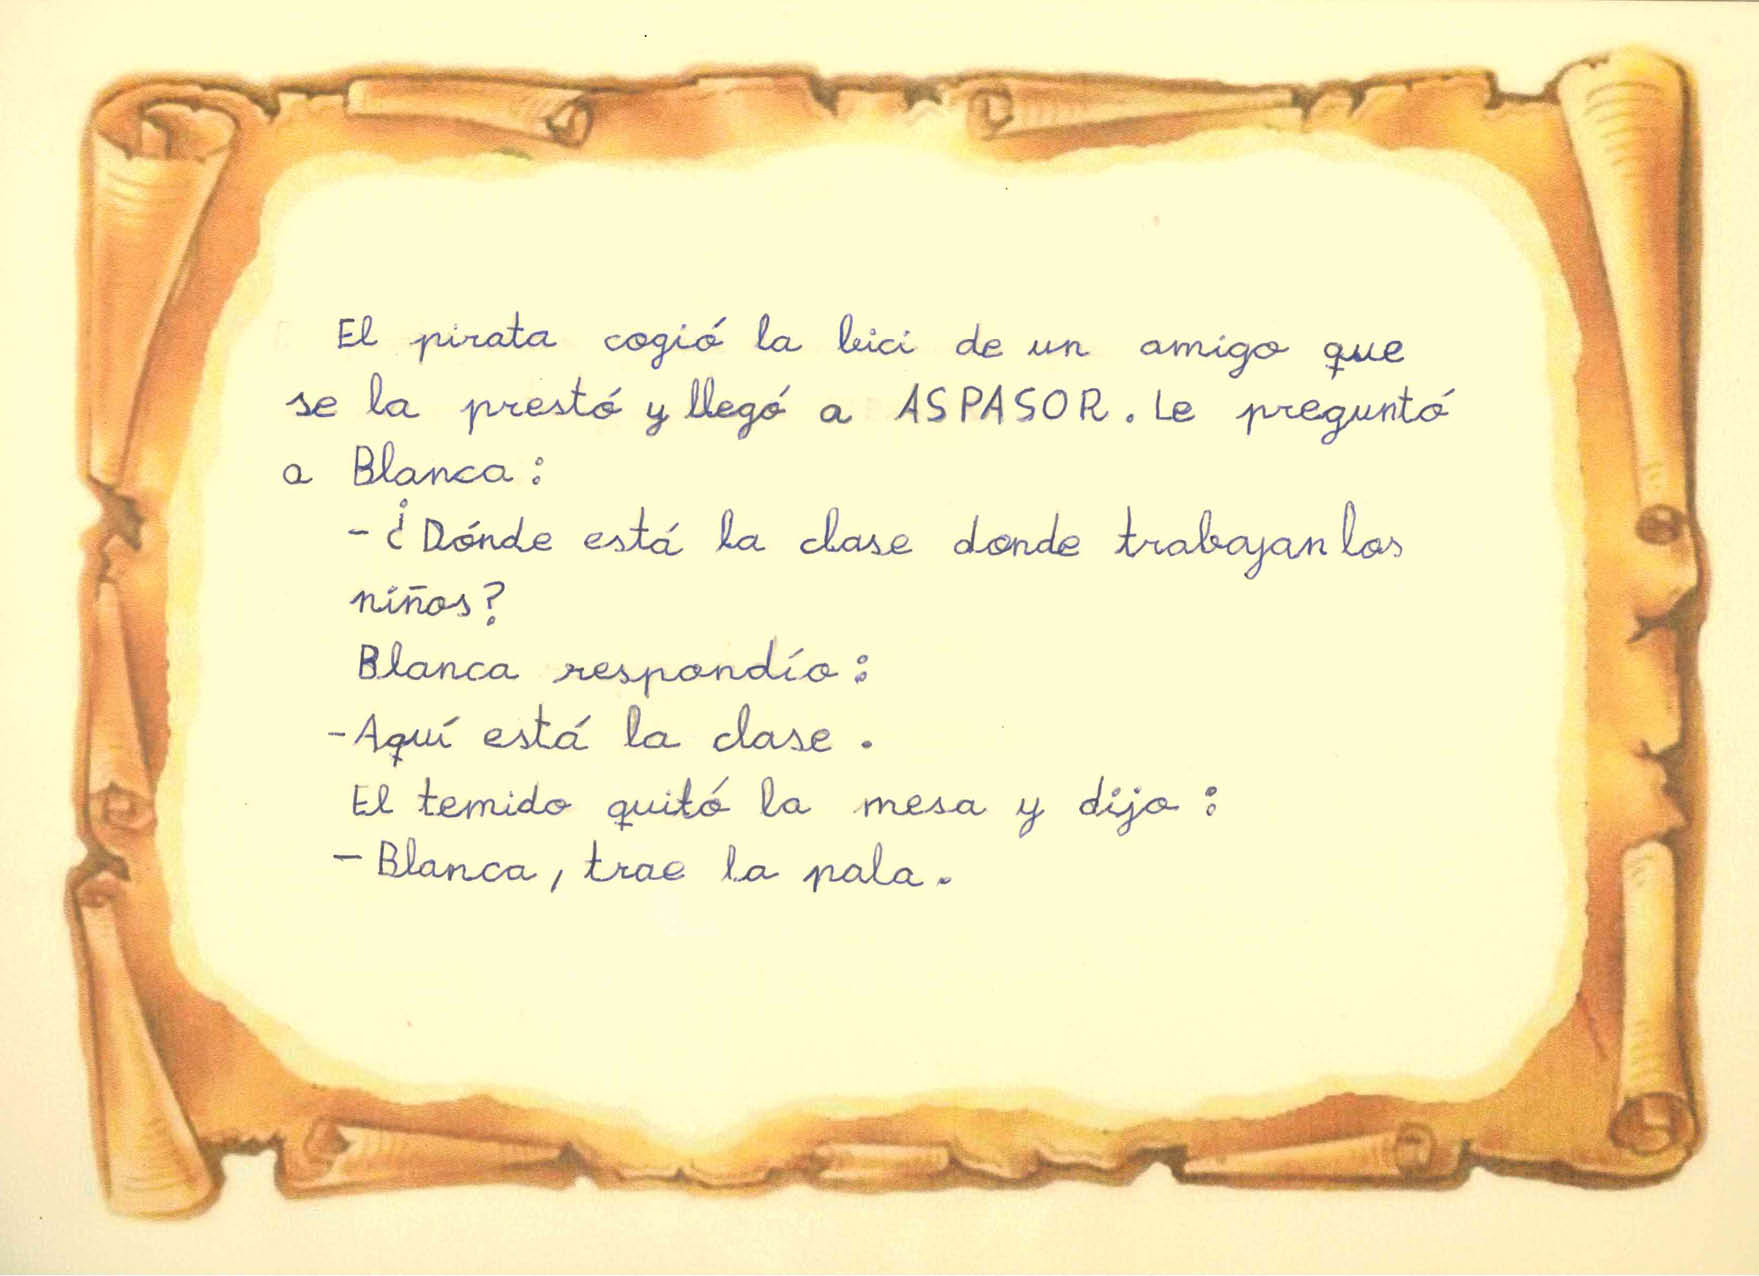 El pirata cogió la bici de un amigo que
se la prestó y llegó a ASPASOR. Le preguntó
a Blanca:
- ¿Dónde está la clase donde trabajan los
niños?
Blanca respondío:
- Aquí está la clase.
El temido quitó la mesa y dijo:
- Blanca, trae la pala.